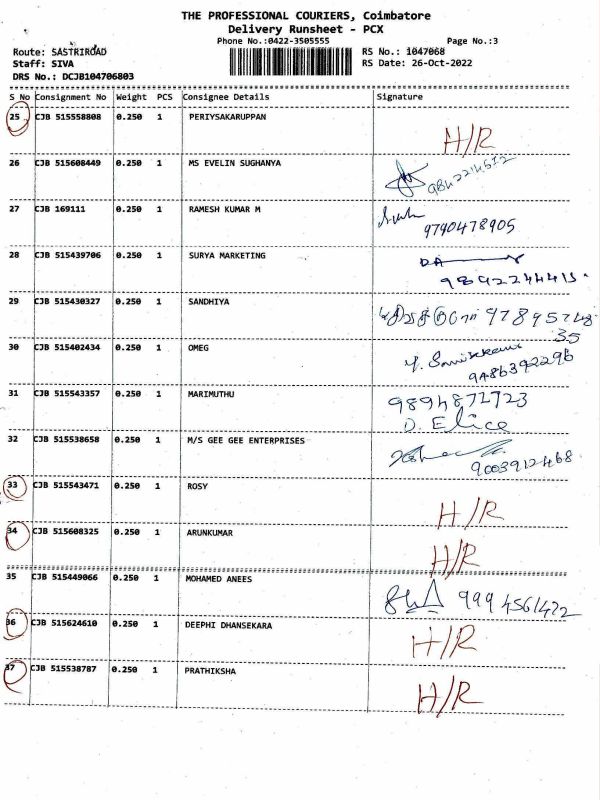 THE PROFESSIONAL COURIERS, Coimbatore
Delivery Runsheet - PCX
Phone No.:0422-3505555 Page No.:3
Route: SASTRIROAD RS No.: 1047068
Staff: SIVA RS Date: 26-Oct-2022
DRS No.: DCJB104706803
S No Consignment No Weight PCS Consignee Details Signature
25 CJB 515558808 0.250 1 PERIYSAKARUPPAN
H/R
26 CJB 515608449 0.250 1 MS EVELIN SUGHANYA
9842214512
27 CJB 169111 0.250 1 RAMESH KUMAR M
9790478905
28 CJB 515439706 0.250 1 SURYA MARKETING
9892244415.
29 CJB 515430327 0.250 1 SANDHIYA
35
30 CJB 515402434 0.250 1 OMEG
9486392296
31 CJB 515543357 0.250 1 MARIMUTHU
9894872723
D. Elice
32 CJB 515538658 0.250 1 M/S GEE GEE ENTERPRISES
9003912468
33 CJB 515543471 0.250 1 ROSY
H/R
34 CJB 515608325 0.250 1 ARUNKUMAR
H/R
35 CJB 515449066 0.250 1 MOHAMED ANEES
9994561422
36 CJB 515624610 0.250 1 DEEPHI DHANSEKARA
H/R
37 CJB 515538787 0.250 1 PRATHIKSHA
H/R